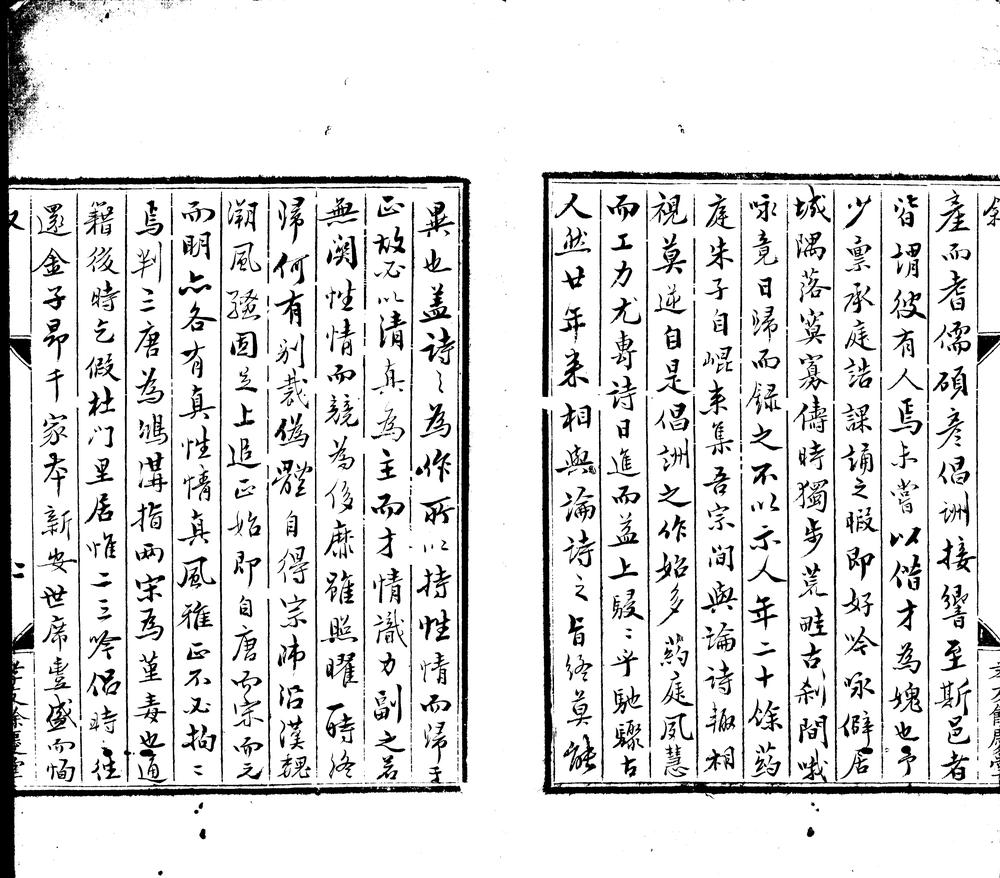 產而耆儒碩彥倡詶接響至斯邑者
皆謂彼有人焉未嘗以偕才為媿也予
少稟承庭誥課誦之暇即好吟咏僻居
城隅落寞寡儔時獨步荒畦古刹間哦
咏竟日歸而録之不以示人年二十餘葯
庭朱子自崐来集吾宗間與論詩輙相
視莫逆自是倡詶之作始多葯庭夙慧
而工力尤專詩日進而益上駸〻乎馳驟古
人然廿年来相與論詩之旨終莫能
異也盖詩之為作所以持性情而歸于
正故必以清真為主而才情識力副之若
無関性情而競為侈靡雖照曜一時終
歸何有别裁偽體自得宗沛沿漢魏
溯風騷固足上追正始即自唐而宋而元
而明亦各有真性情真風雅正不必拘〻
焉判三唐為鴻溝指兩宋為堇毒也通
籍後時乞假杜门里居惟二三吟侣時〻往
還金子昂千家本新安世席豊盛而恂